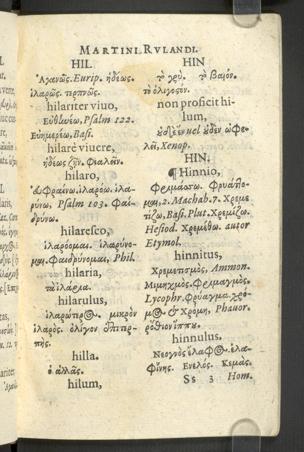 MARTINI RVLANDI.
HIL.
Ἀγανῶς. Eurip. ἡδέως.
ἱλαρῶς. τερπνῶς.
hilariter viuo,
Εὐθλωέω, Psalm 122.
Εὐημερέω, Basi.
hilarè viuere,
ἡδέως ζῆν. Φιαλεῖν.
hilaro,
Εὐφραίνω. ἱλαρόω. ἱλα-
ρύνω, Psalm 103. Φαι-
δρύνω.
hilaresco,
ἱλαροῦμαι. ἱλαρύνο-
μαι. Φαιδρύνομαι, Phil.
hilaria,
τὰ ἱλάρια.
hilarulus,
ἱλαρώτερος μικρὸν
ἱλαρὸς. ὀλίγον ἐπιτερ-
πὴς.
hilla.
ὁ ἀλλᾶς.
hilum,
HIN
τὸ γρύ. τὸ βαιόν.
τὸ ὀλίγοςόν.
non proficit hi-
lum,
οὐδὲν uel οὐδεν ὠφε-
λεῖ, Xenop.
HIN.
¶ Hinnio,
Φριμάσσω. Φρυάττο-
μαι, 2. Machab. 7. Χρεμε-
τίζω, Basi. Plut. Χρεμίζω.
Hesiod. Χρεμέθω. autor
Etymol.
hinnitus,
Χρεμετισμὸς, Ammon.
Μιμηχμὸς. Φριμαγμὸς,
Lycophr. Φρύαγμα. χρο-
μος & Χρόμη, Phauor.
ῥόθιον ἵππου.
hinnulus.
Νεογνὸς ἔλαφος. ἐλα-
φίνης. Ενελός. Κεμὰς.
Ss 3 Hom.